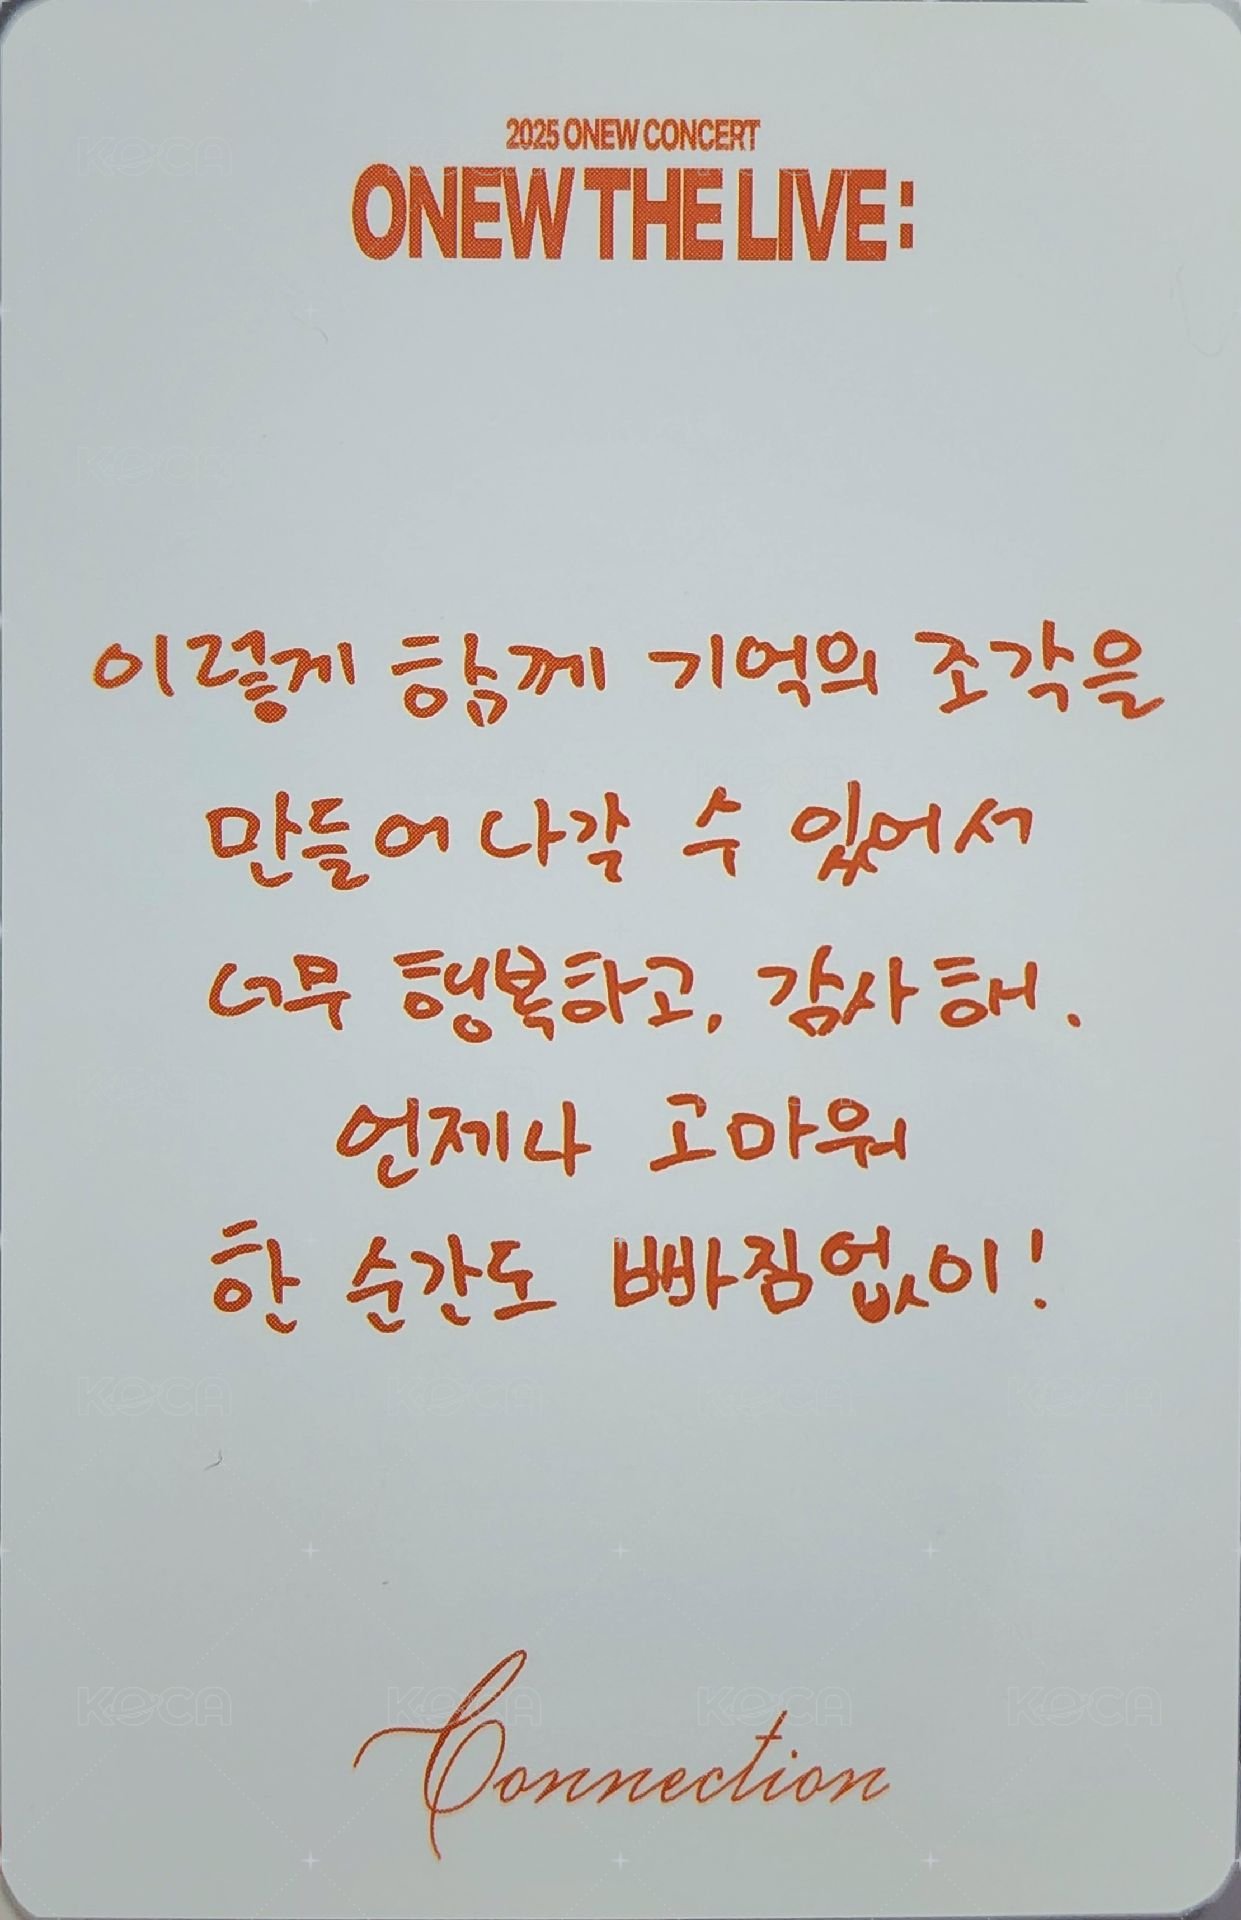 2025 ONEW CONCERT
ONEW THE LIVE :
이렇게 함께 기억의 조각을
만들어 나갈 수 있어서
너무 행복하고, 감사해.
언제나 고마워
한 순간도 빠짐없이!
Connection
KOCA